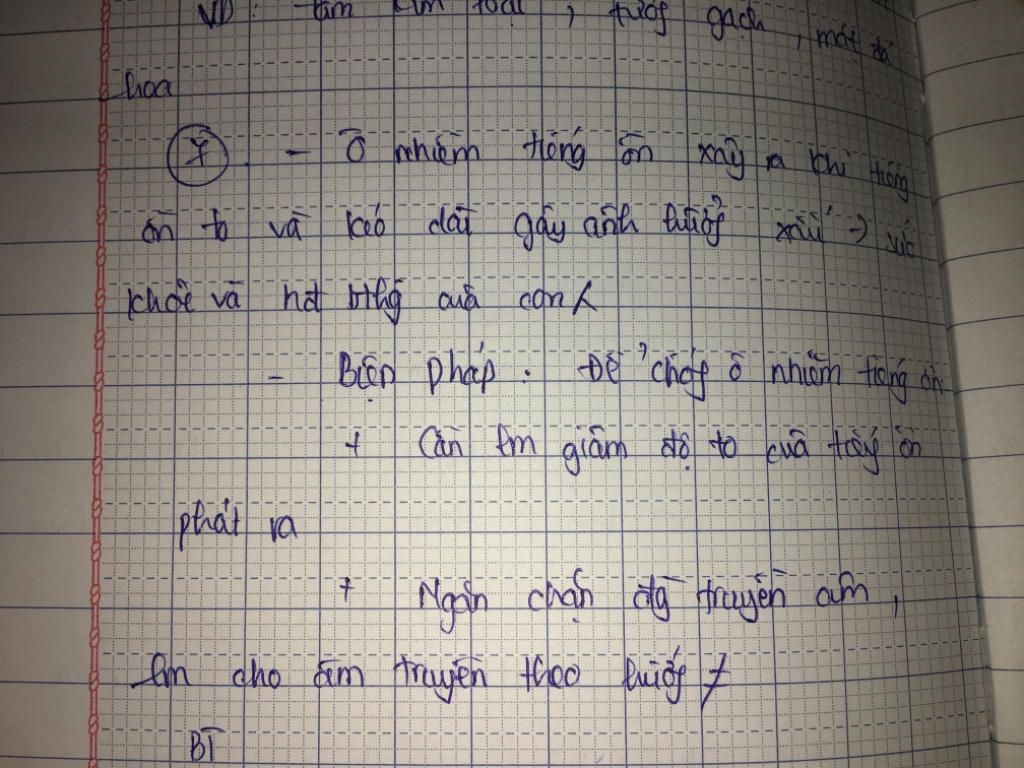 VD: tấm kim loại, tường gạch, mặt đá
hoa
7. - Ô nhiễm tiếng ồn xảy ra khi tiếng
ồn to và kéo dài gây ảnh hưởng xấu → sức
khỏe và hđ bthg của con
- Biện pháp: Để chống ô nhiễm tiếng ồn
+ Cần lm giảm độ to của tiếng ồn
phát ra
+ Ngăn chặn đg truyền âm,
lm cho âm truyền theo hướng ≠
BT